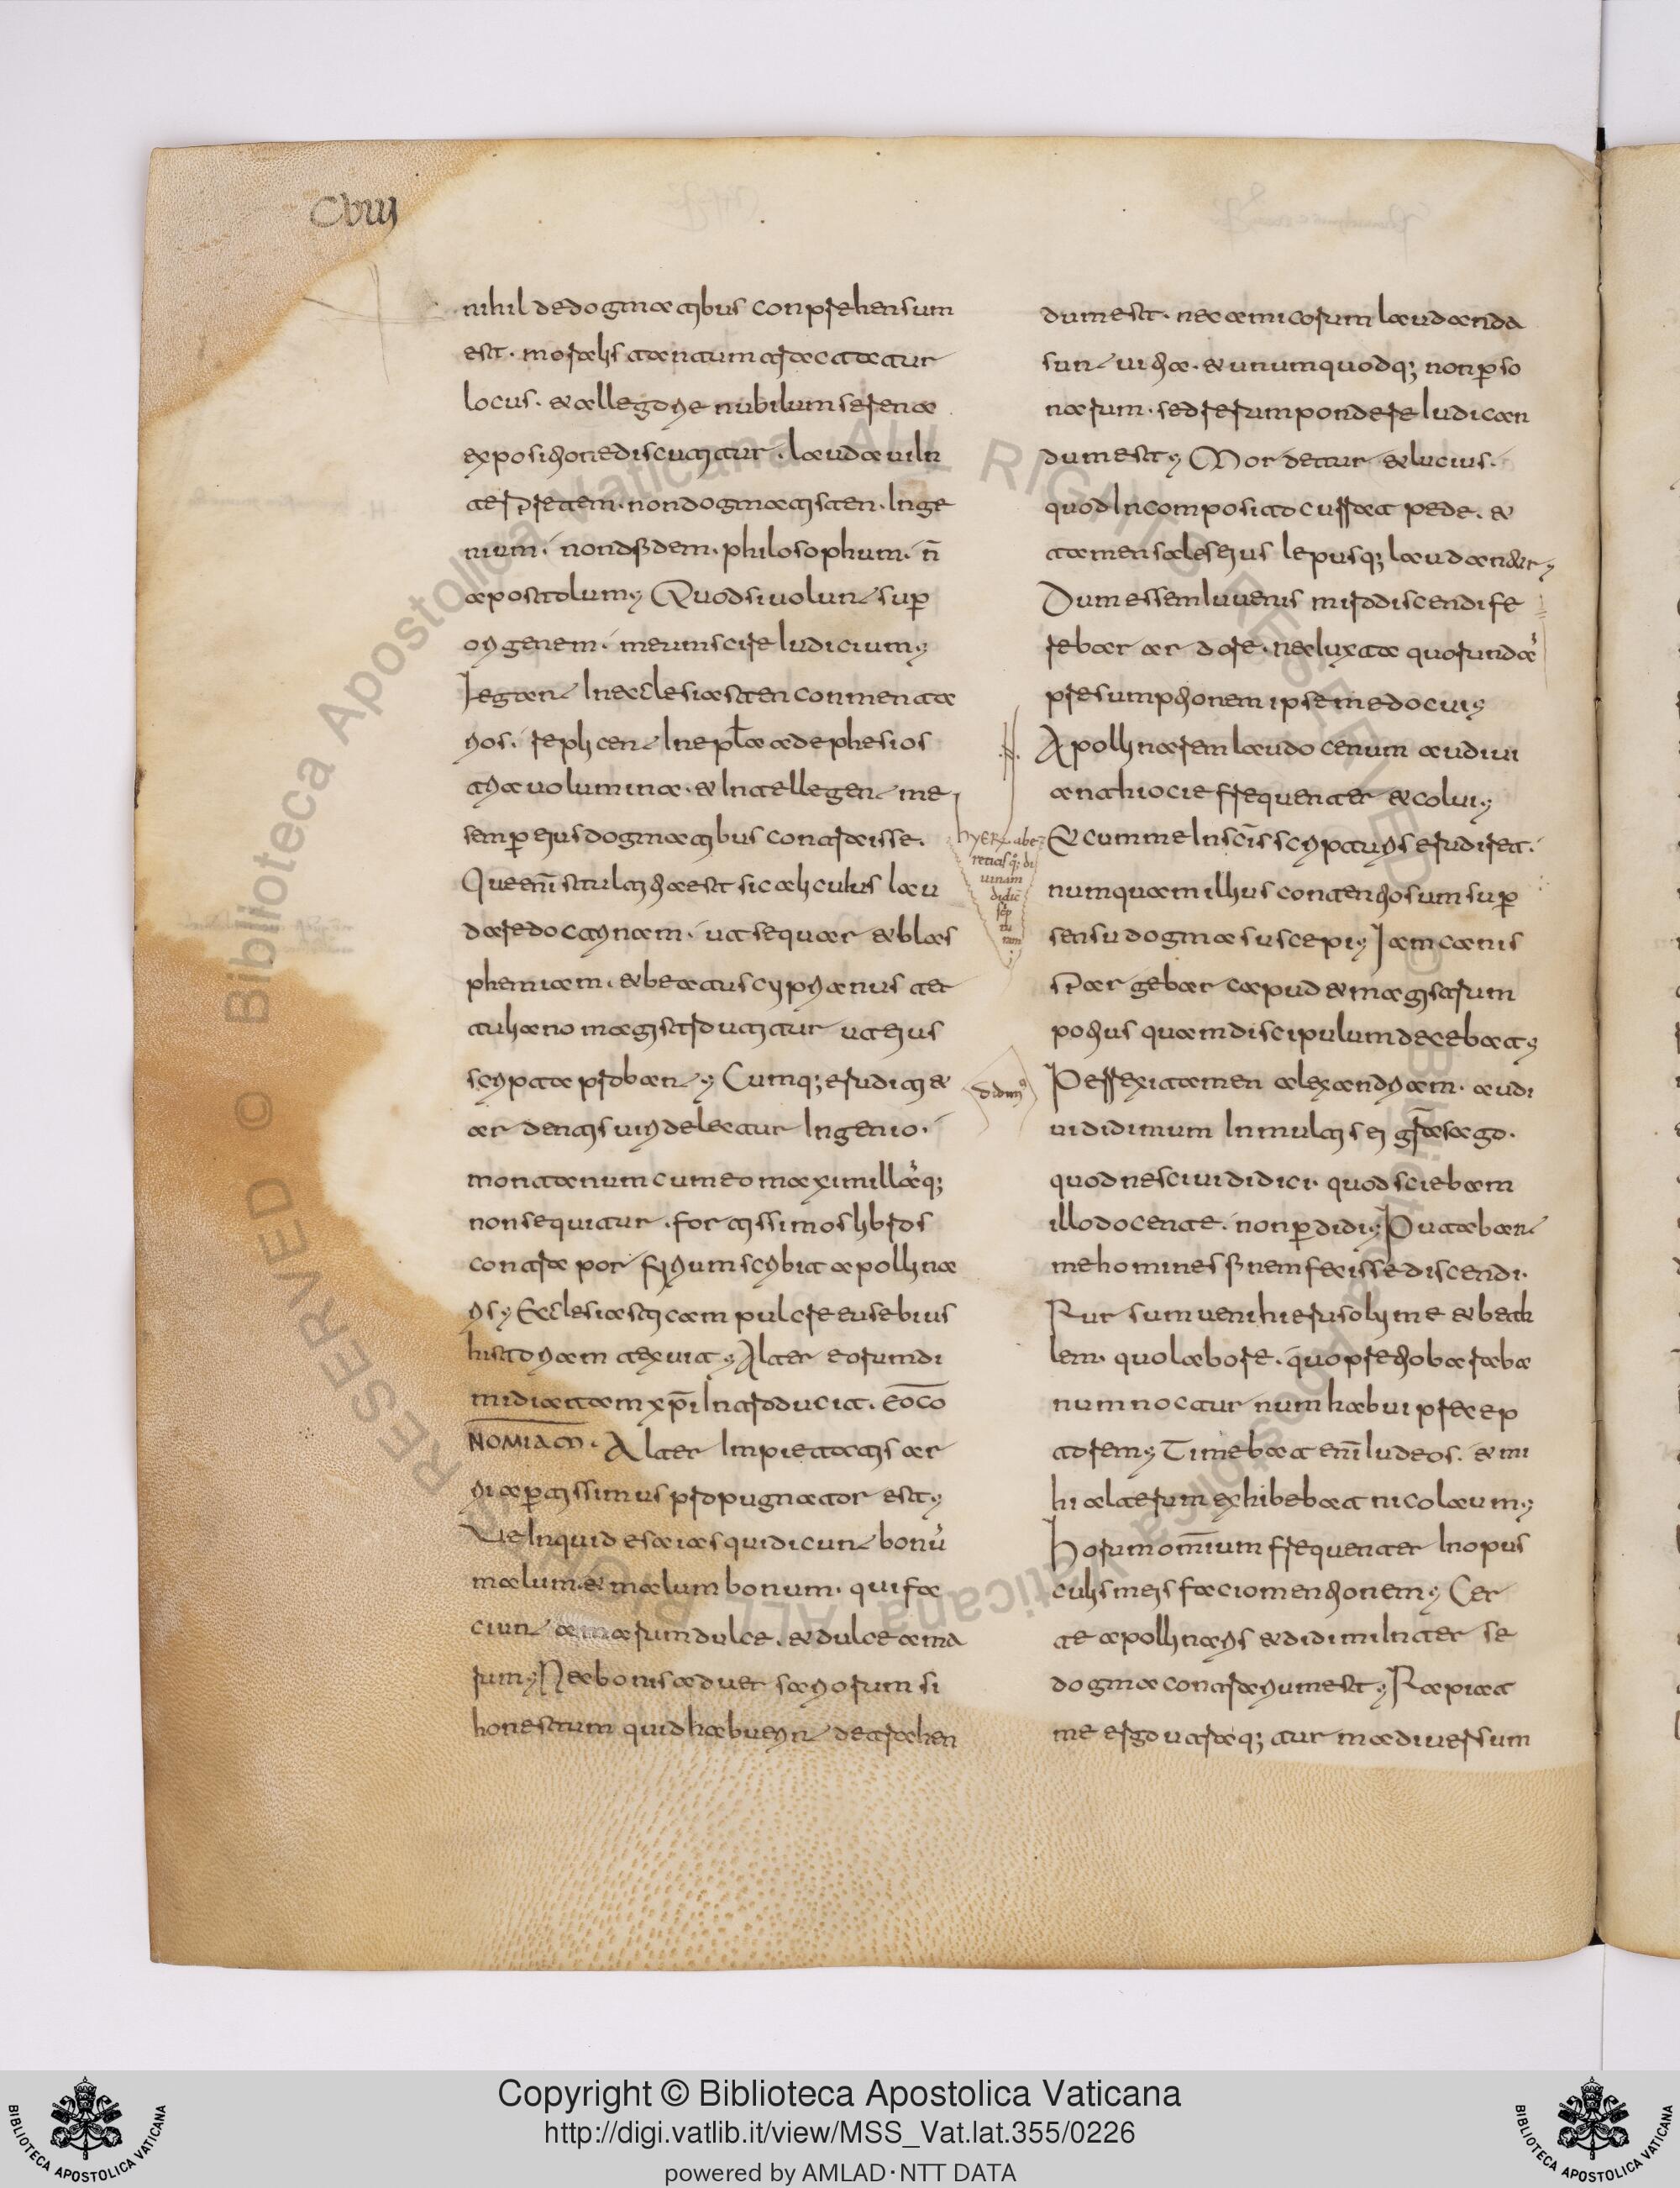 Cviij
nihil dedogmatibus conprehensum
est. moralis tantum tractatur
locus. & allegoriae nubilum serena
expositione discutitur. laudavi in
terpretem. non dogmatisten. Inge
nium. non fidem. philosophum. n̄
apostolum; Quod si volunt sup̄
origenem. meum scire Iudicium;
Legant In ecclesiasten conmenta
rios. replicent In ep̄tła adephesios
tria volumina. & Intellegent me
semp̄ eius dogmatibus contraisse.
Que enī stultitia est sic aliculus lau
dare doctrinam. ut sequar & blas
phemiam. & beatus cyprianus ter
tuliano magistro utitur ut eius
scripta probant; Cumq; eruditi &
ardentis viri delectatur Ingenio.
montanum cum eo maximillaq;
non sequitur. fortissimos libros
contra porfyrium scribit apollina
ris; Ecclesiasticam pulcre eusebius
historiam texuit; Alter eorum di
midiatam xp̄i Introducit. EOCO
NOMIAM. Alter Impietatis ar
rii apertissimus propugnator est;
Ve Inquid esaias qui dicunt bonū
malum. & malum bonum. qui fa
ciunt amarum dulce. & dulce ama
rum; Nec bonis aduersariorum si
honestum quid habuerint detrahen
dum est. nec amicorum laudanda
sunt vitia. & unumquodq; non p̄so
narum. sed rerum pondere Iudican
dum est; Mordetur & lucius.
quod Incomposito currat pede. &
tamen sales eius lepusq; laudantur;
Dum essem Iuvenis miro discendi fe
rebar ardore. nec Iuxta quorunda
presumptionem ipse me docui;
Apollinarem laudocenum audivi
antiochie frequenter & colui;
hyer aber
retias q; di
uinam
didic̄
sep
tu
ram
& cum me In sc̄is scripturis erudiret.
numquam illius contentiosum sup̄
sensu dogma suscepi; Iam canis
spargebar capud & magistrum
potius quam discipulum decebat;
didimꝰ
Perrexi tamen alexandriam. audi
vi didimum In multis ei gratias ago.
quod nescivi didici. quod sciebam
illo docente. non p̄didi; Putabant
me homines finem fecisse discendi.
Rursum veni hierusolyme & bethle
lem. quo labore. quo pretio baraba
num nocturnum habui precep
torem; Timebat enī Iudeos. & mi
hi alterum exhibebat nicolaum;
Horum omnium frequenter In opus
culis meis facio mentionem; Cer
te apollinaris & didimi Inter se
dogma contrarium est; Rapiat
me ergo utraq; turma diversum
Copyright © Biblioteca Apostolica Vaticana
http://digi.vatlib.it/view/MSS_Vat.lat.355/0226
powered by AMLAD·NTT DATA